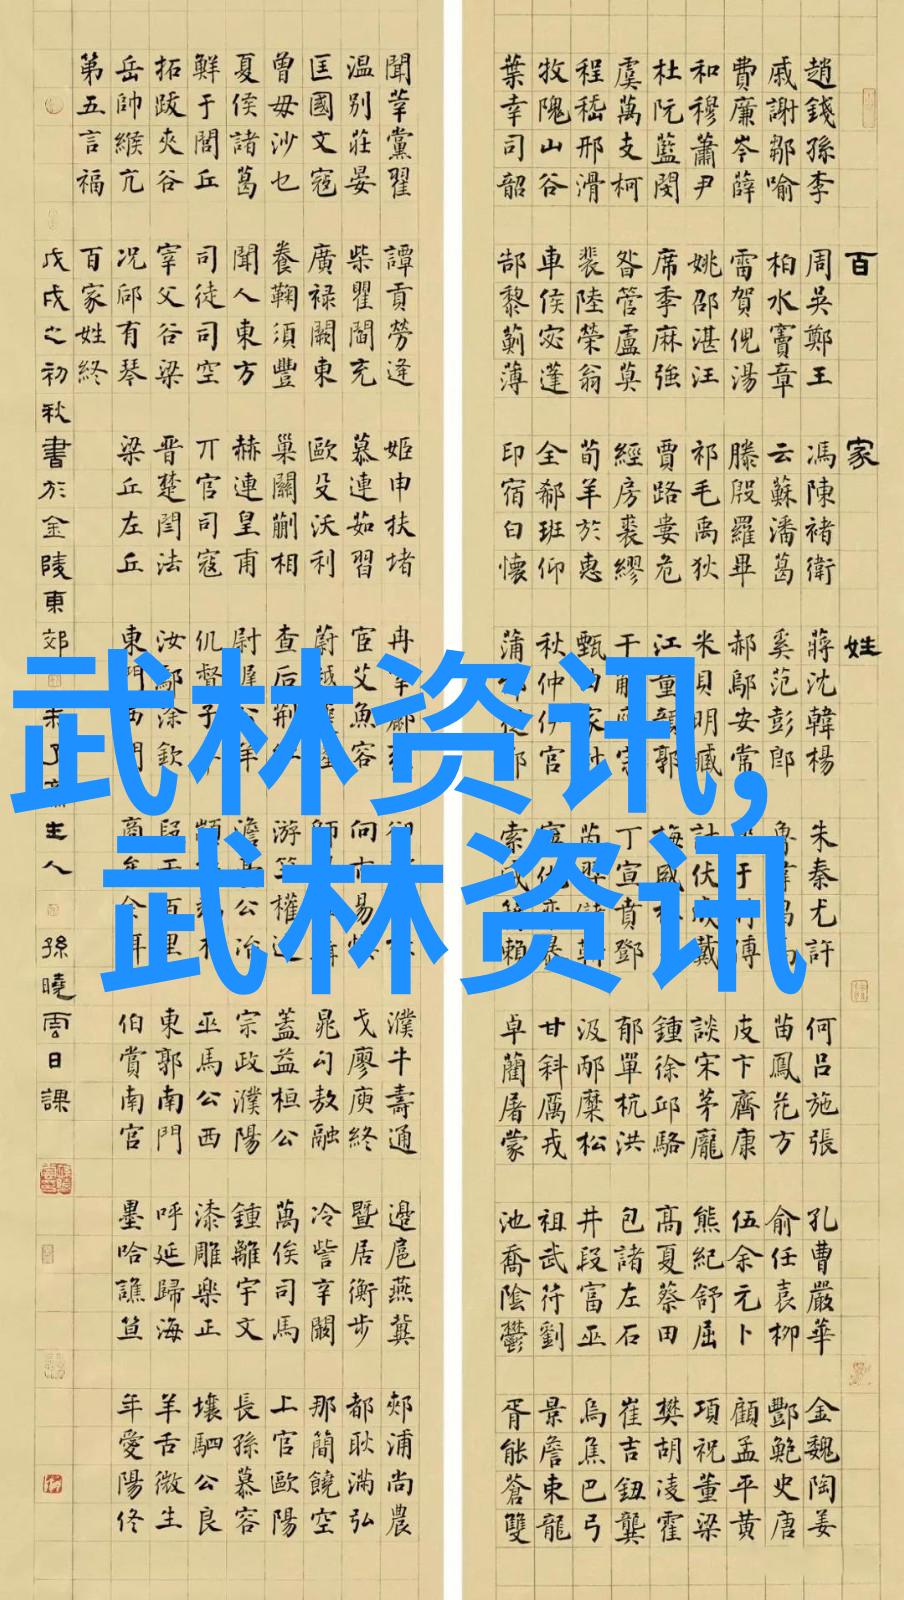 百家姓
趙錢孫李 周吳鄭王 馮陳褚衛 蔣沈韓楊 朱秦尤許 何呂施張 孔曹嚴華 金魏陶姜
戚謝鄒喻 柏水竇章 云蘇潘葛 奚范彭郎 魯韋昌馬 苗鳳花方 俞任袁柳 酆鮑史唐
費廉岑薛 雷賀倪湯 滕殷羅畢 郝鄔安常 于傅 皮卞齊康 伍余元卜 顧孟平黃
和穆蕭尹 姚邵湛汪 祁毛禹狄 米貝明臧 計伏成戴 談宋茅龐 熊紀舒屈 項祝董梁
杜阮藍閔 席季麻強 賈路婁危 江童顏郭 梅盛林 鍾徐邱駱 高夏蔡田 樊胡凌霍
虞萬支柯 昝管盧莫 經房裘繆 干解宗 丁宣賁鄧 郁單杭洪 包諸左石 崔吉鈕龔
程嵇邢滑 裴陸榮翁 荀羊於惠 甄家封 芮羿儲靳 汲邴糜松 井段富巫 烏焦巴弓
牧隗山谷 車侯宓蓬 全郗班仰 秋仲伊宮 甯仇欒暴 甘斜厲戎 祖武符劉 景詹束龍
葉幸司韶 郜黎薊薄 印宿白懷 蒲從鄂 索咸籍賴 卓藺屠蒙 池喬陰鬱 胥能蒼雙
聞莘黨翟 譚貢勞逄 姬申扶堵 冉宰酈 濮牛壽通 邊扈燕冀 郟浦尚農
温別莊晏 柴瞿閻充 慕連茹習 宦艾魚容 向古易 戈廖庾終 暨居衡步 都耿滿弘
匡國文寇 廣祿闕東 歐殳沃利 蔚越隆 師 晁勾敖融 冷訾辛闞 那簡饒空
曾毋沙乜 養鞠須豐 巢關蒯相 查后荊 游竺權逯 蓋益桓公 萬俟司馬 上官歐陽
夏侯諸葛 聞人東方 赫連皇甫 尉遲公羊 澹公冶 宗政濮陽 鍾離宇文 長孫慕容
鮮于閭丘 司徒司空 丌官司寇 仉督子 巫馬公西 漆雕樂正 壤駟公良
拓跋夾谷 宰父谷梁 晉楚閆法 汝鄢涂欽 段干百里 東郭南門 呼延歸海 羊舌微生
岳帥緱亢 況郈有琴 梁丘左丘 東門西門 商牟佘佴 伯賞南宮 墨哈譙笪 年愛陽佟
第五言福 百家姓終
戊戌之初秋書於金陵東郊未了齋主人 孫曉雲日課
武林资讯,
武林资讯